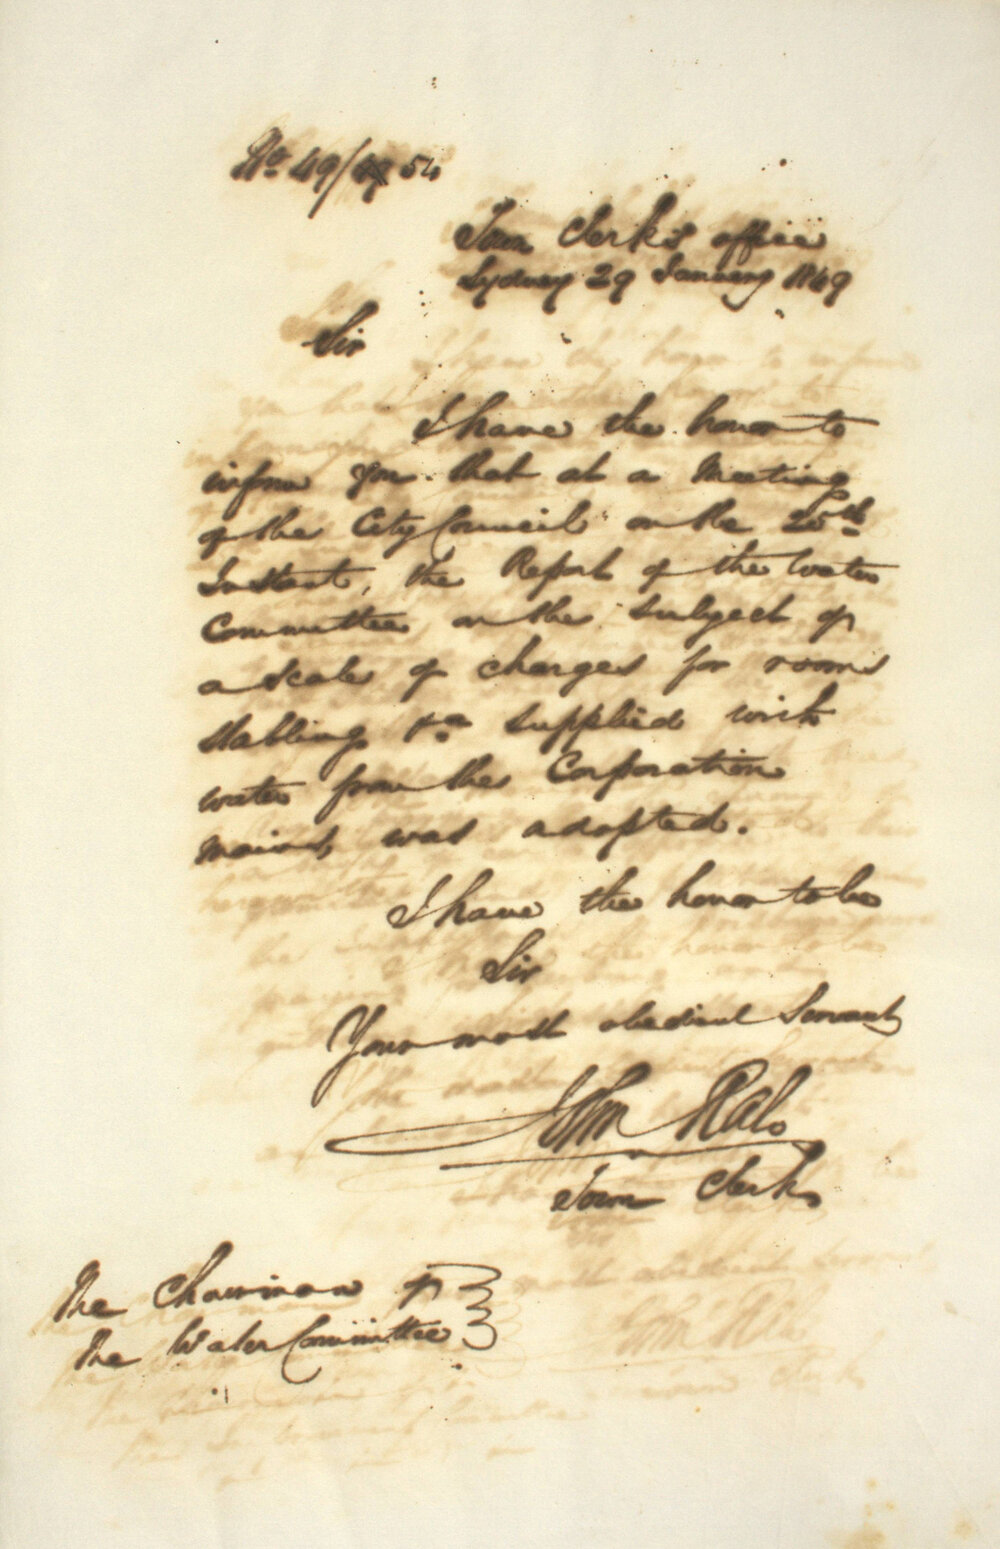 No. 49/ 54
Town Clerk's office
Sydney 29 January 1849
Sir
I have the honor to
inform you that at a Meeting
of the City Council on the 25th
Instant, the Report of the Water
Committee on the subject of
a scale of charges for rooms
stabling &ca supplied with
water from the Corporation
mains, was adopted.
I have the honor to be
Sir
Your most obedient Servant
John Rae
Town Clerk
The Chairman of
the Water Committee